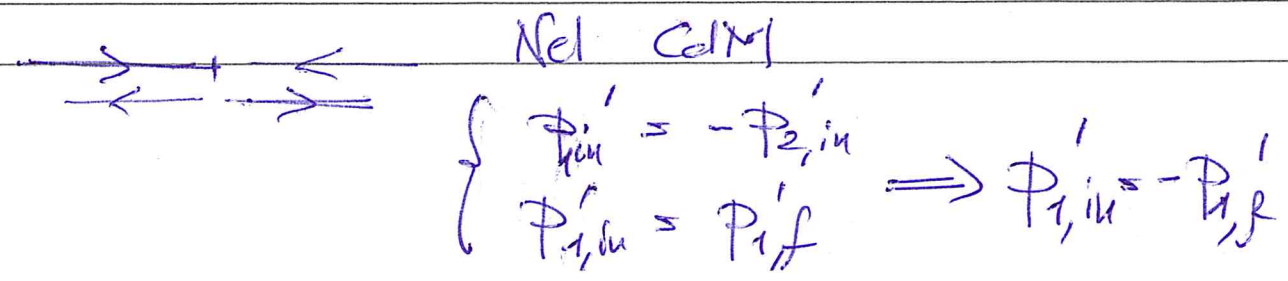 Nel CdM
{ p'₁,in = - p'₂,in
p'₁,in = p'₁,f ⟹ p'₁,in = - p'₁,f